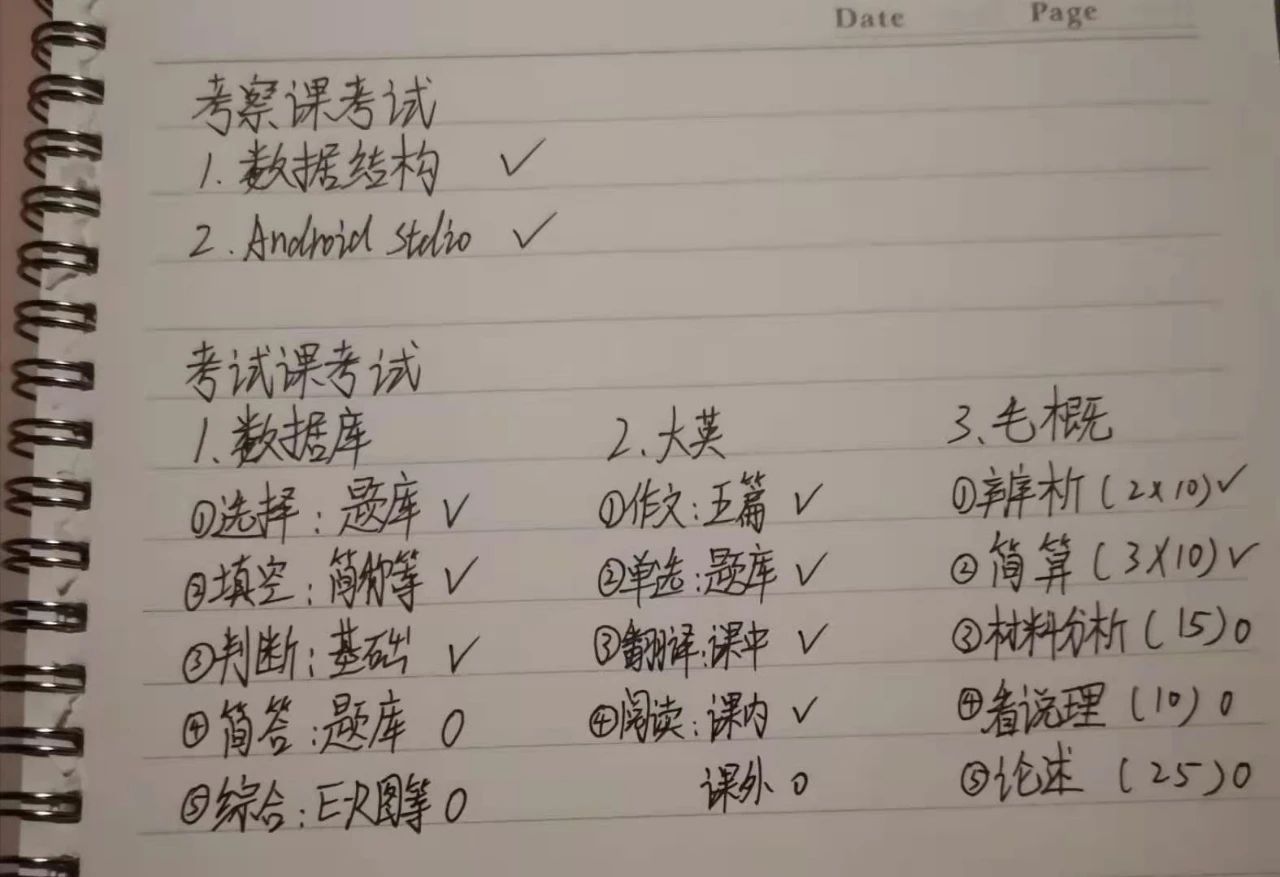 Date Page
考察课考试
1.数据结构 ✓
2.Android stdio ✓
考试课考试
1.数据库
①选择:题库 ✓
②填空:简称等 ✓
③判断:基础 ✓
④简答:题库 O
⑤综合:E-R图等 O
2.大英
①作文:五篇 ✓
②单选:题库 ✓
③翻译:课中 ✓
④阅读:课内 ✓
课外 O
3、毛概
①辨析(2×10)✓
②简算(3×10)✓
③材料分析(15)O
④看说理(10)O
⑤论述(25)O